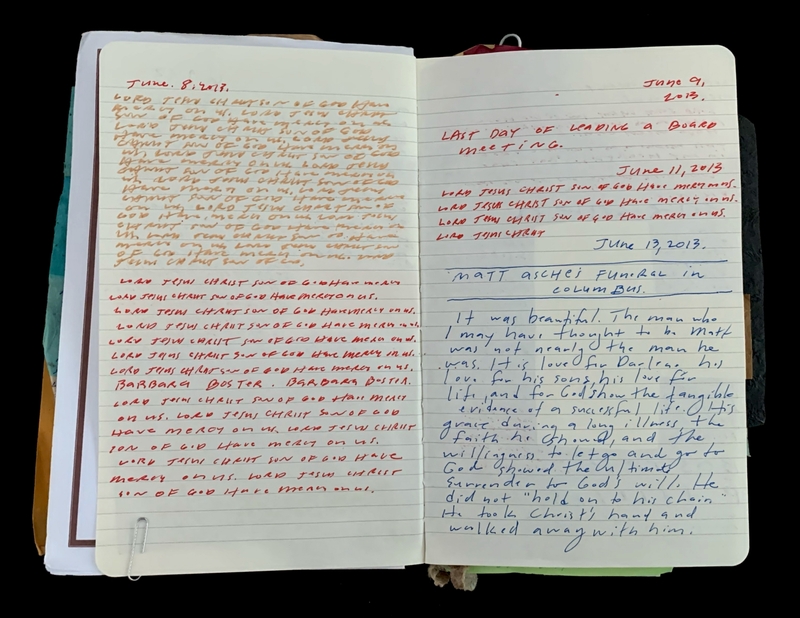 June. 8, 2013.
LORD JESUS CHRIST SON OF GOD HAVE
MERCY ON US. LORD JESUS CHRIST
SON OF GOD HAVE MERCY ON US
LORD JESUS CHRIST SON OF GOD
HAVE MERCY ON US. LORD JESUS
CHRIST SON OF GOD HAVE MERCY ON
US, LORD JESUS CHRIST SON OF GOD
HAVE MERCY ON US LORD JESUS
CHRIST SON OF GOD HAVE MERCY ON
US. LORD JESUS CHRIST SON OF GOD
HAVE MERCY ON US. LORD JESUS
CHRIST SON OF GOD HAVE MERCY
ON US. LORD JESUS CHRIST SON OF
GOD HAVE MERCY ON US LORD JESUS
CHRIST SON OF GOD HAVE MERCY ON
US. LORD JESUS CHRIST SON OF HAVE
MERCY ON US LORD JESUS CHRIST SON
OF GOD HAVE MERCY ON US. LORD
JESUS CHRIST SON OF GOD,
LORD JESUS CHRIST SON OF GOD HAVE MERCY
LORD JESUS CHRIST SON OF GOD HAVE MERCY ON US.
LORD JESUS CHRIST SON OF GOD HAVE MERCY ON US.
LORD JESUS CHRIST SON OF GOD HAVE MERCY ON US.
LORD JESUS CHRIST SON OF GOD HAVE MERCY ON US.
LORD JESUS CHRIST SON OF GOD HAVE MERCY ON US.
LORD JESUS CHRIST SON OF GOD HAVE MERCY ON US.
BARBARA BOSTER. BARBARA BOSTER.
LORD JESUS CHRIST SON OF GOD HAVE MERCY
ON US. LORD JESUS CHRIST SON OF GOD
HAVE MERCY ON US. LORD JESUS CHRIST
SON OF GOD HAVE MERCY ON US.
LORD JESUS CHRIST SON OF GOD HAVE
MERCY ON US. LORD JESUS CHRIST
SON OF GOD HAVE MERCY ON US.
June 9,
2013.
LAST DAY OF LEADING A BOARD
MEETING.
June 11, 2013
LORD JESUS CHRIST SON OF GOD HAVE MERCY ON US.
LORD JESUS CHRIST SON OF GOD HAVE MERCY ON US.
LORD JESUS CHRIST SON OF GOD HAVE MERCY ON US.
LORD JESUS CHRIST
June 13, 2013.
MATT ASCHES FUNERAL in
COLUMBUS.
It was beautiful. The man who
I may have thought to be Matt
was not nearly the man he
was. It is love for Darlene his
love for his sons, his love for
life, and for God show the tangible
evidence of a successful life. His
grace during a long illness, the
faith he showed, and the
willingness to let go and go to
God showed the ultimate
surrender to God's will. He
did not "hold on to his chain"
He took Christ's hand and
walked away with him.